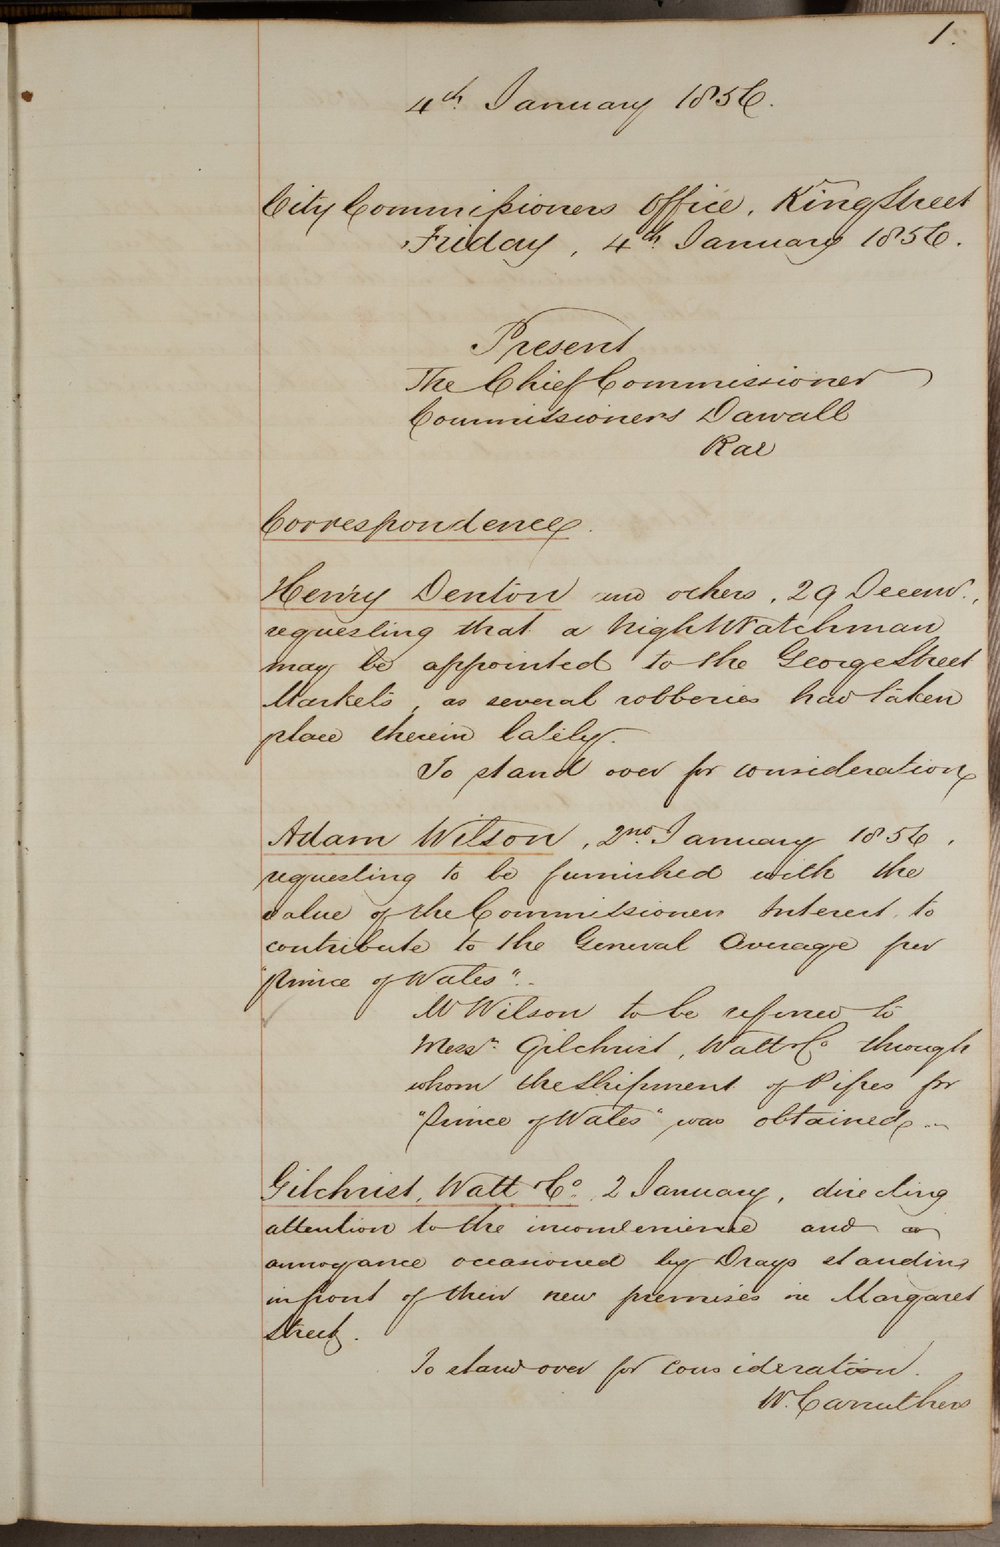 1.
4th January 1856.
City Commissioners Office, King Street
Friday, 4th January 1856.
Present
The Chief Commissioner
Commissioners Darvall
Rae
Correspondence.
Henry Denton and others, 29 Decemr.,
requesting that a night Watchman
may be appointed to the George Street
Markets, as several robberies had taken
place therein lately.
To stand over for consideration
Adam Wilson, 2nd January 1856,
requesting to be furnished with the
value of the Commissioners Interest to
contribute to the General Average per
"Prince of Wales".
Mr Wilson to be referred to
Messrs Gilchrist, Watt & Co through
whom the Shipment of Pipes pr
"Prince of Wales" was obtained.
Gilchrist, Watt & Co. 2 January, directing
attention to the inconvenience and
annoyance occasioned by Drays standing
in front of their new premises in Margaret
Street.
To stand over for consideration.
W. Carruthers